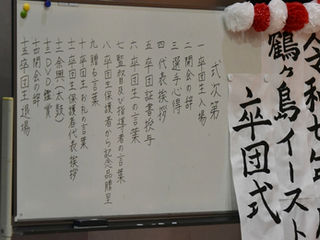 式次第
一 卒団生入場
二 開会の辞
三 選手心得
四 代表挨拶
五 卒団証書授与
六 卒団生の言葉
七 監督及び指導者の言葉
八 卒団生保護者から記念品贈呈
九 贈る言葉
十 卒団生お礼の言葉
十一 卒団生保護者代表挨拶
十二 余興(太鼓)
十三 DVD鑑賞
十四 閉会の辞
十五 卒団生退場
令和七年度
鶴ヶ島イースト
卒団式